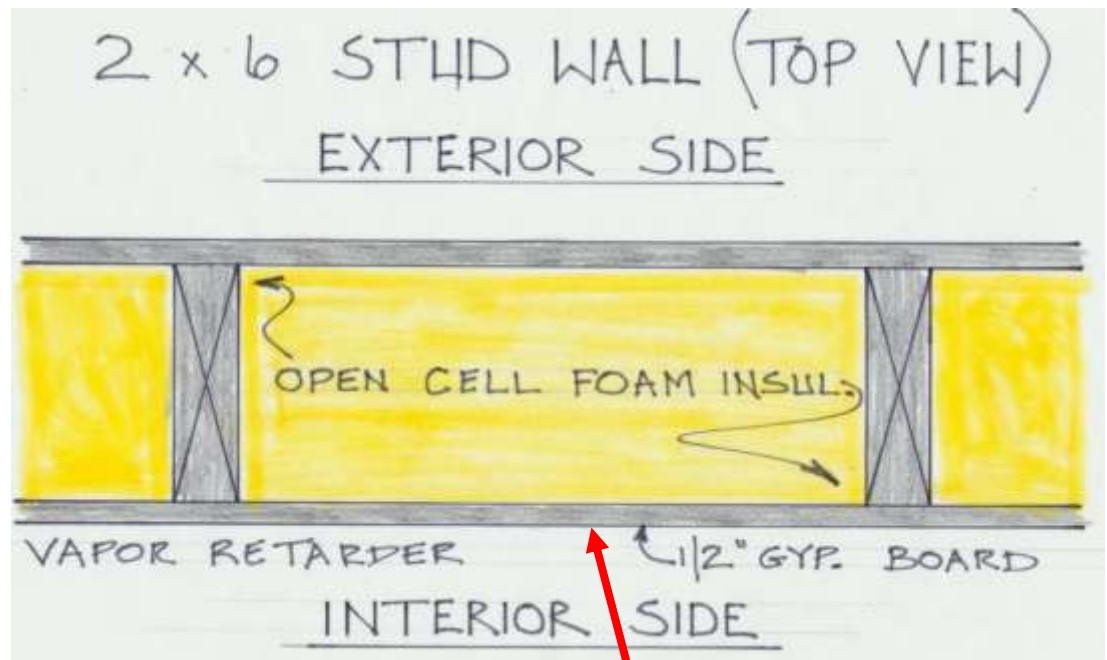 2 x 6 STUD WALL (TOP VIEW)
EXTERIOR SIDE
OPEN CELL FOAM INSUL.
VAPOR RETARDER
1/2" GYP. BOARD
INTERIOR SIDE